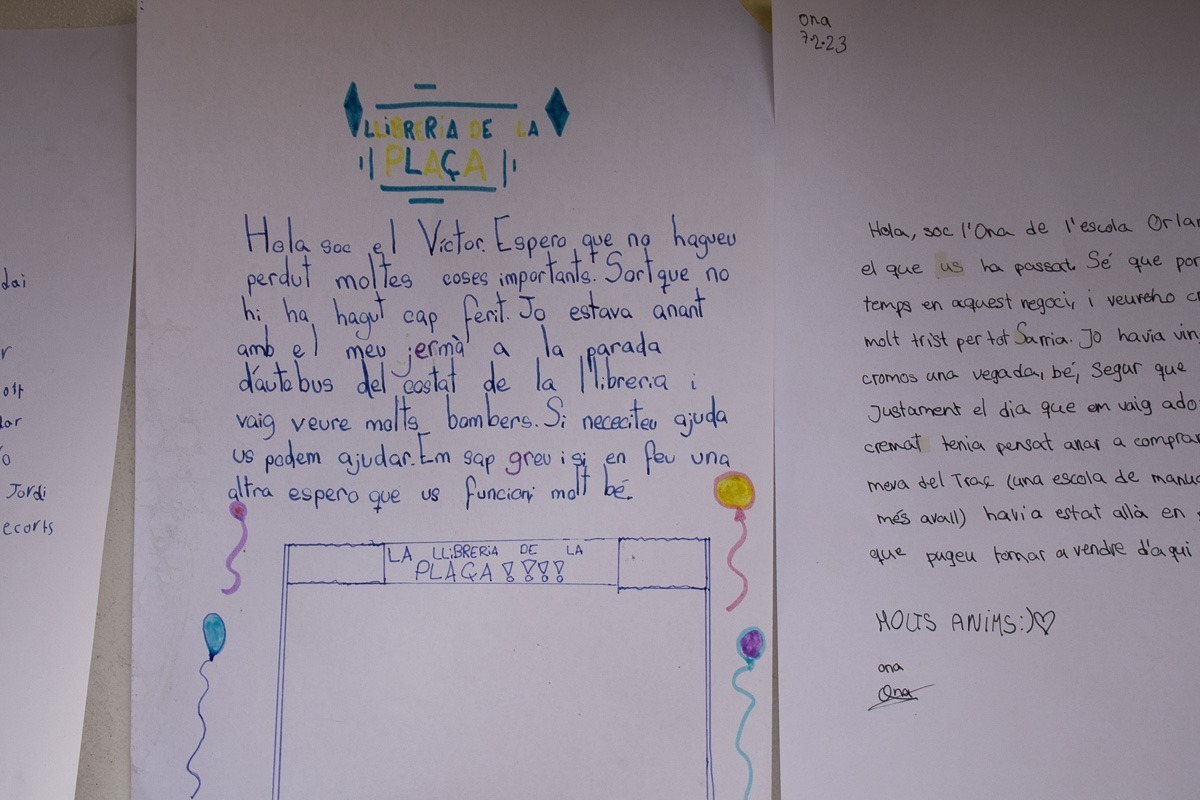 dai
r
olt
dar
o
Jordi
ecorts
LLiBRERiA DE LA
PLAÇA
Hola soc el Víctor. Espero que no hagueu
perdut moltes coses importants. Sort que no
hi ha hagut cap ferit. Jo estava anant
amb el meu jermà a la parada
d'autobus del costat de la llibreria i
vaig veure molts bombers. Si nececiteu ajuda
us podem ajudar. Em sap greu i si en feu una
altra espero que us funcioni molt bé.
LA LLiBRERiA DE LA
PLAÇA !!!!
Ona
7-2-23
Hola, soc l'Ona de l'escola Orla
el que us ha passat. Sé que por
temps en aquest negoci, i veureho c
molt trist per tot Sarria. Jo havia vin
cromos una vegada, bé, Segur que
Justament el dia que em vaig ado
cremat tenia pensat anar a compra
meva del Traç (una escola de manu
més avall) havia estat allà en
que pugeu tornar a vendre d'aqui
MOLTS ANIMS:)♡
ona
Ona